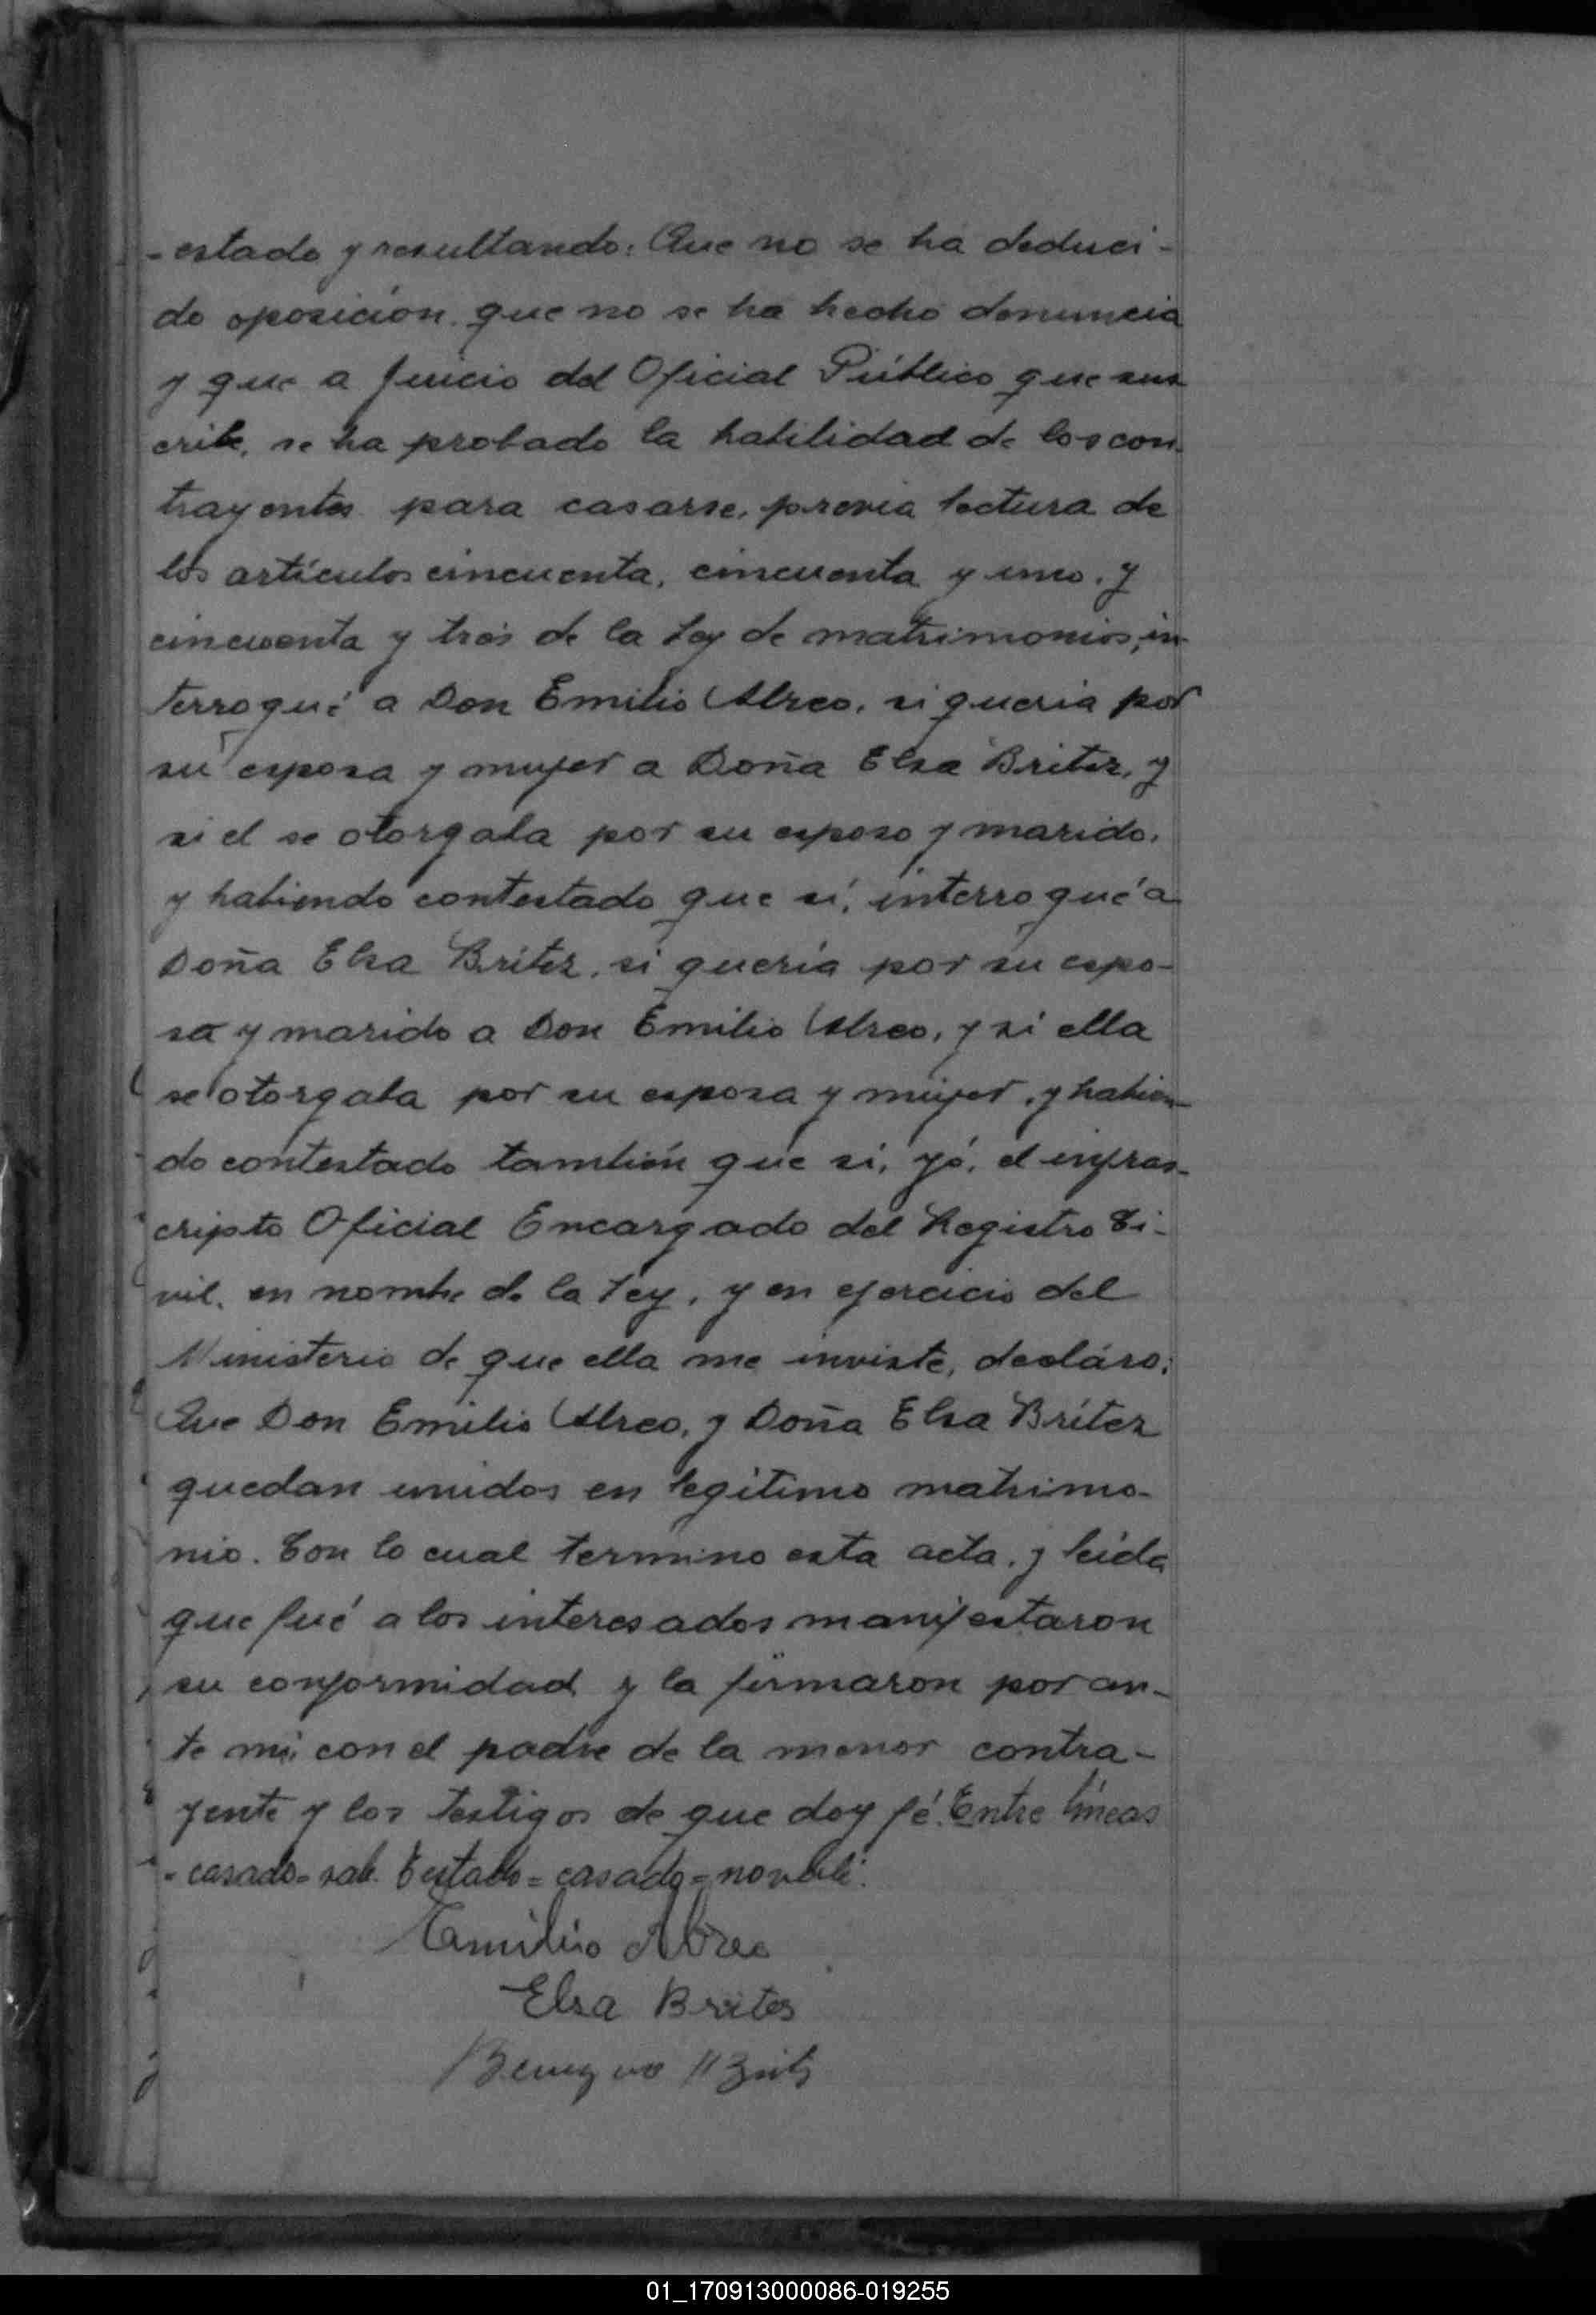 - estado y resultando: Que no se ha deduci-
do oposición. que no se ha hecho denuncia
y que a juicio del Oficial Público que sus
cribe, se ha probado la habilidad de los con-
trayentes para casarse, previa lectura de
los artículos cincuenta, cincuenta y uno, y
cincuenta y tres de la Ley de matrimonios, in-
terrogué a Don Emilio Abreo, si queria por
su esposa y mujer a Doña Elsa Britez, y
si el se otorgaba por su esposo y marido,
y habiendo contestado que sí, interrogué a
Doña Elsa Britez, si quería por su espo-
so y marido a Don Emilio Abreo, y si ella
se otorgaba por su esposa y mujer, y habien-
do contestado también que si, yó, el infras-
cripto Oficial Encargado del Registro Ci-
vil, en nombre de la Ley, y en ejercicio del
Ministerio de que ella me inviste, decláro:
Que Don Emilio Abreo, y Doña Elsa Britez
quedan unidos en legítimo matrimo-
nio. Con lo cual termino esta acta, y leída
que fué a los interesados manifestaron
su conformidad y la firmaron por an-
te mi con el padre de la menor contra-
yente y los testigos de que doy fé. Entre líneas
- casado = vale. Testado = casado = no vale.
Emilio Abreo
Elsa Brites
Benigno
01_170913000086-019255